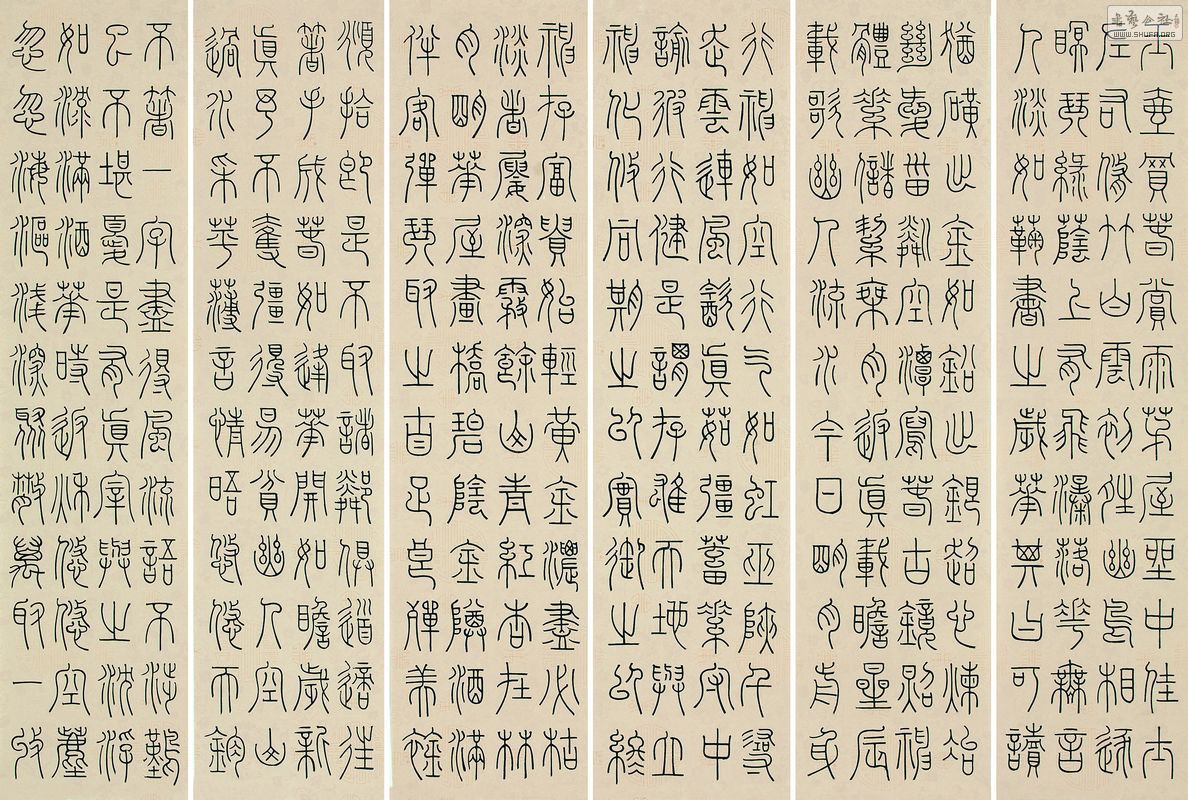 玉壺買春賞雨茆屋坐中佳士
左右脩竹白雲初晴幽鳥相逐
眠琴綠蔭上有飛瀑落華無言
人淡如鞠書之歲華其曰可讀
猶礦出金如鉛出銀超心煉冶
絕愛緇磷空潭瀉春古鏡照神
體素儲絜乘月返真載瞻星辰
載歌幽人流水今日明月前身
行神如空行气如虹巫陜千尋
走雲連風飲真茹彊蓄素守中
諭彼行健是謂存雄天地與立
神化攸同期之以實御之以終
神存富貴始輕黃金濃盡必枯
淡者屢深霧餘山青紅杏在林
月明華屋畫橋碧陰金罇酒滿
伴客彈琴取之自足良殫美襟
頫拾即是不取諸鄰俱道適往
著手成春如逢華開如瞻歲新
真予不奪彊得易貧幽人空山
過水采苹薄言情晤悠悠天鈞
不著一字盡得風流語不涉難
已不堪憂是有真宰與之沈浮
如淥滿酒華時返秋悠悠空塵
忽忽海漚淺深聚散萬取一收
WWW.SHUFA.ORG